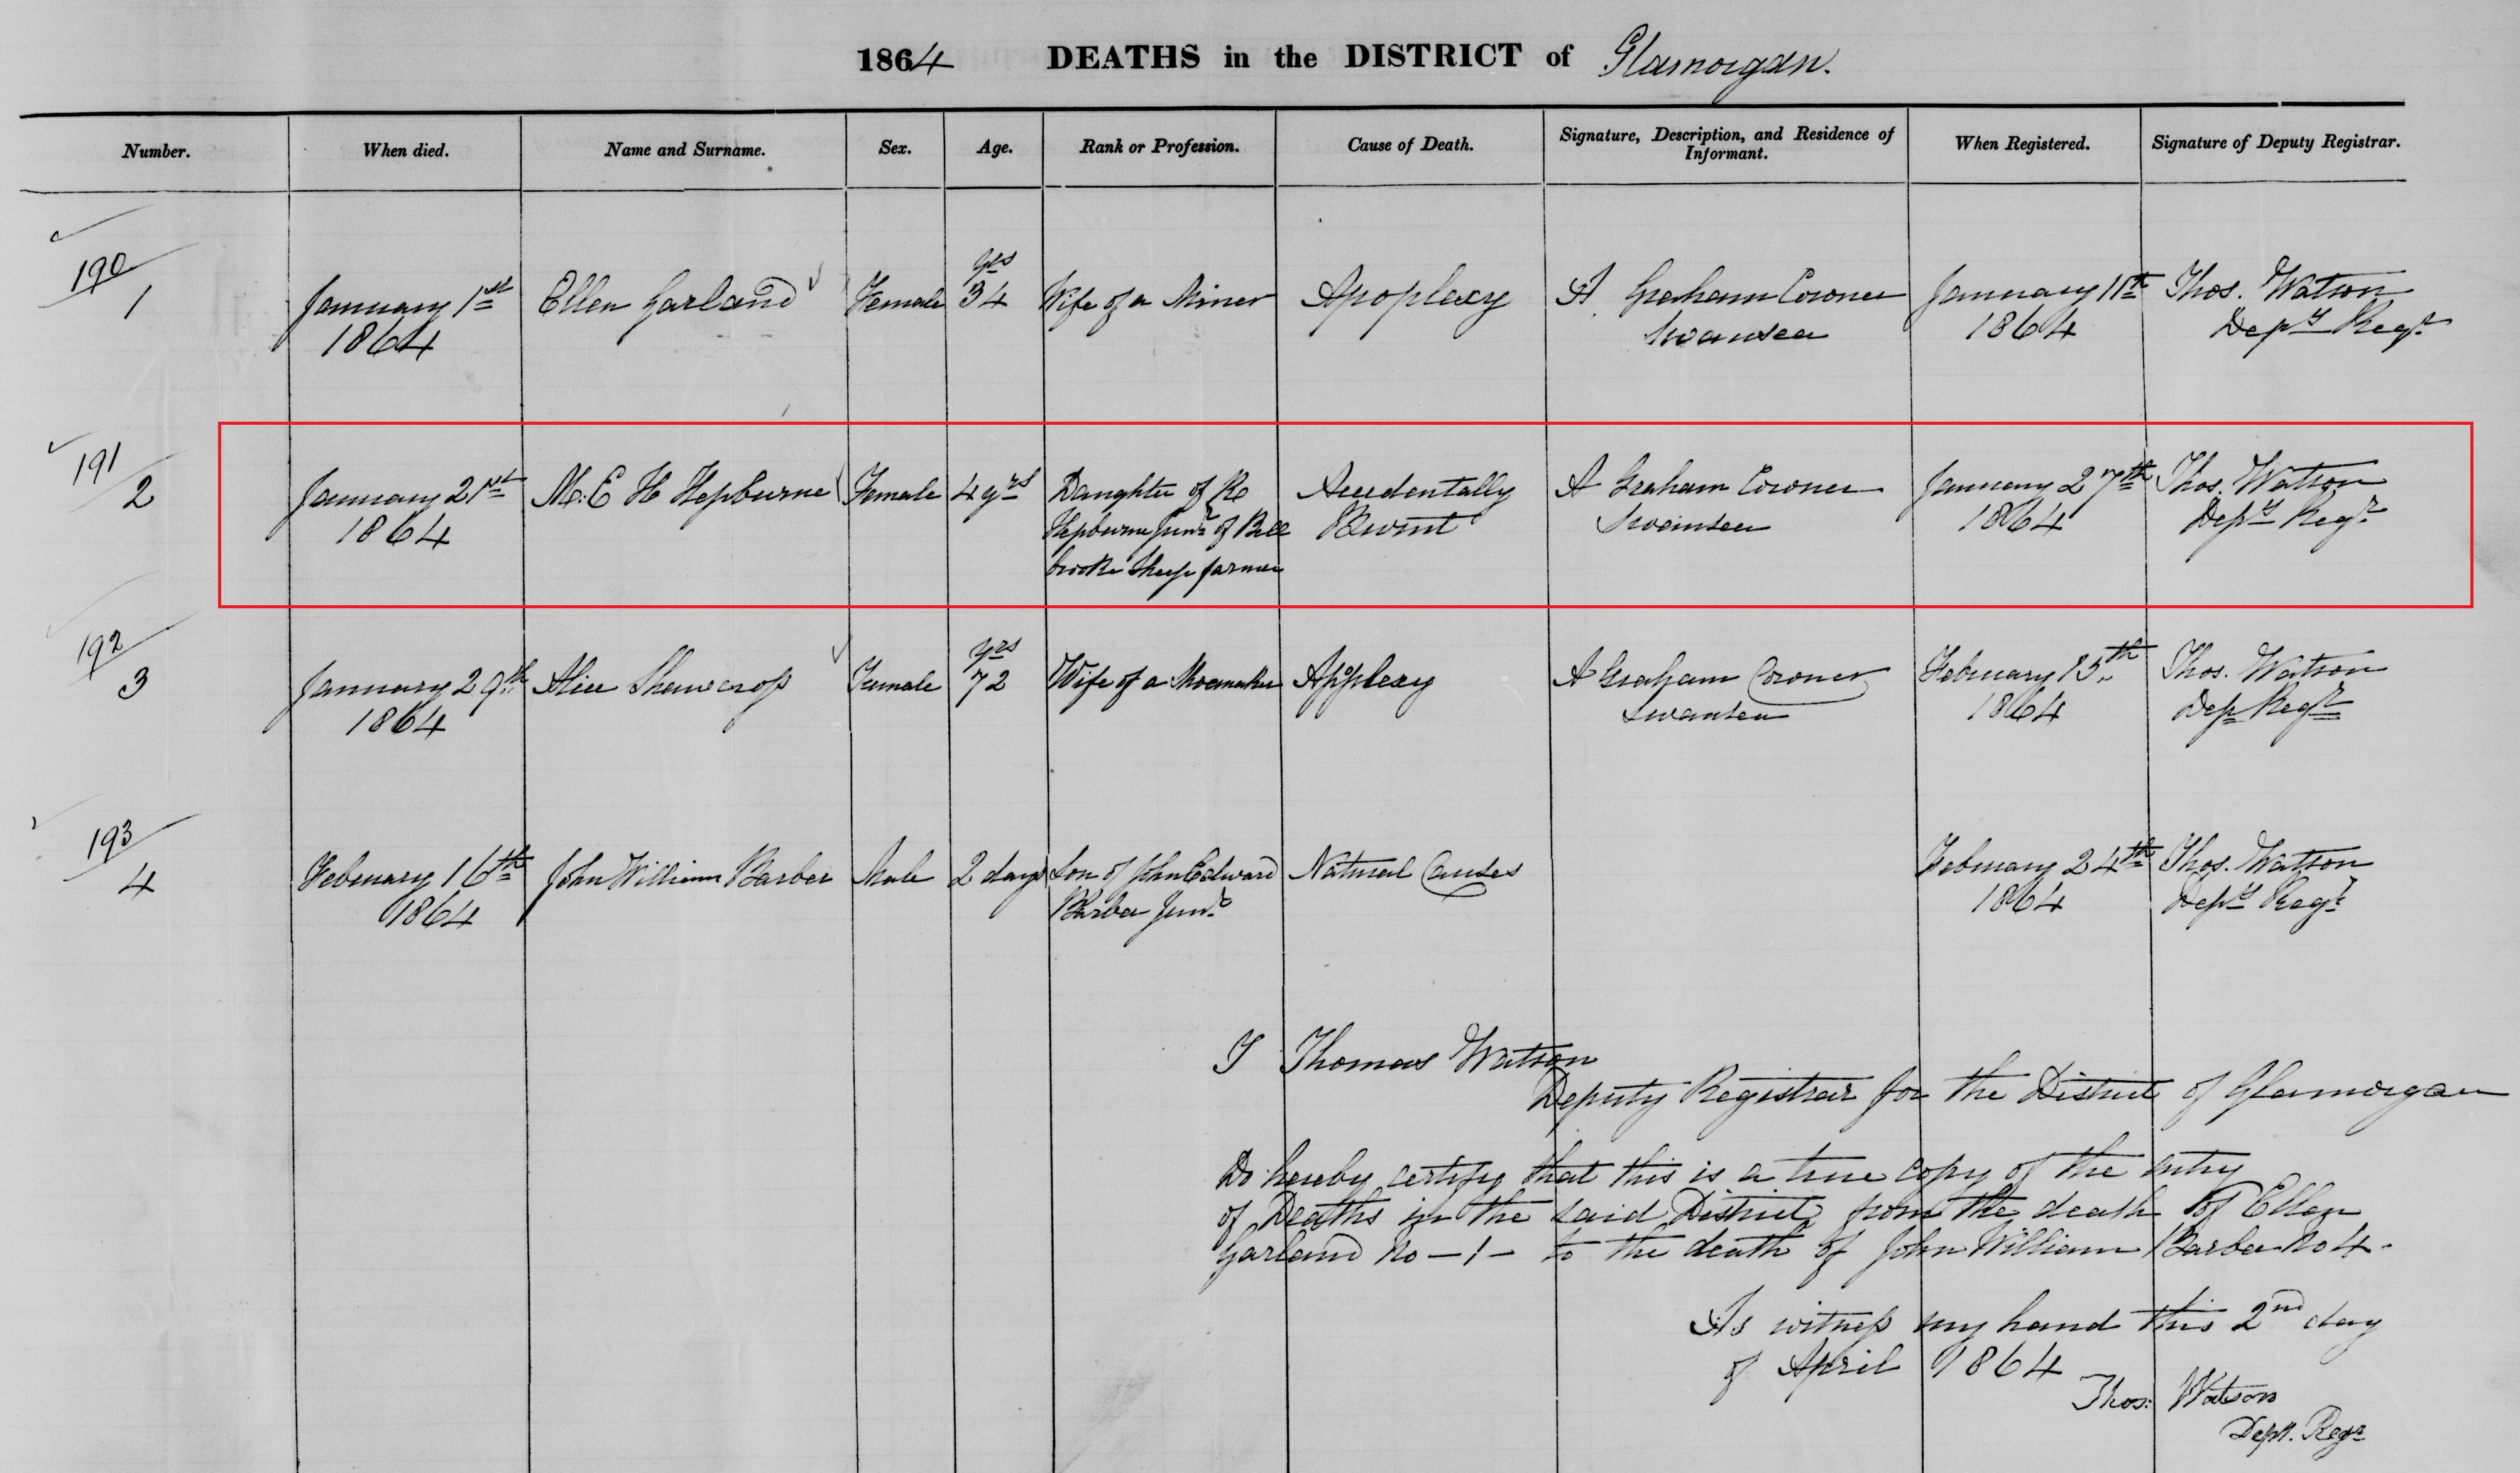 1864 DEATHS in the DISTRICT of Glamorgan.
Number. When died. Name and Surname. Sex. Age. Rank or Profession. Cause of Death. Signature, Description, and Residence of Informant. When Registered. Signature of Deputy Registrar.
190/1 January 1st 1864 Ellen Garland Female 34 yrs Wife of a Miner Apoplexy A Graham Coroner Swansea January 11th 1864 Thos. Watson Depy Regr
191/2 January 21st 1864 M. E H Hepburne Female 4 yrs Daughter of Hepburne Junr of brooke Sheep farmer Accidentally Burnt A Graham Coroner Swansea January 27th 1864 Thos. Watson Depy Regr
192/3 January 29th 1864 Alice Shawcross Female 72 yrs Wife of a Shoemaker Apoplexy A Graham Coroner Swansea February 15th 1864 Thos. Watson Dep Regr
193/4 February 16th 1864 John William Barber Male 2 days Son of John Edward Barber Junr Natural Causes February 24th 1864 Thos. Watson Depy Regr
I Thomas Watson
Deputy Registrar for the District of Glamorgan
Do hereby certify that this is a true copy of the entry
of Deaths in the said District from the death of Ellen
Garland No - 1 - to the death of John William Barber No 4 -
As witness my hand this 2nd day
of April 1864
Thos: Watson
Depy. Regr